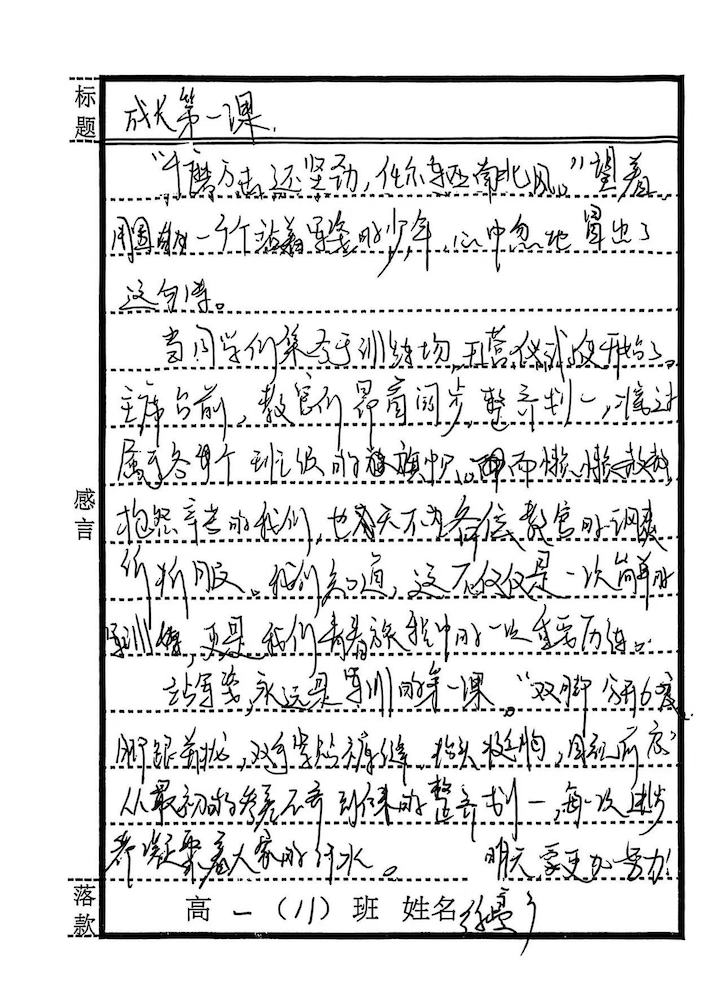 标题
成长第一课.
"千磨万击还坚劲,任尔东西南北风。"望着
周围一个个站着军姿的少年,心中忽地冒出了
这句诗。
当同学们集合于训练场,开营仪式便开始了。
主席台前,教官们昂首阔步,整齐划一,
属于各个班级的旗帜。而懒懒散散,
抱怨辛苦的我们,也无不为各位教官的飒爽
所折服。我们知道,这不仅仅是一次简单的
军训,更是我们青春旅程中的一次重要历练。
感言
站军姿,永远是军训的第一课。"双脚分开60度,
脚跟并拢,双手紧贴裤缝,抬头挺胸,目视前方"
从最初的参差不齐到后来的整齐划一,每一次进步
都凝聚着大家的汗水。 明天,要更加努力!
落款
高一(11)班 姓名徐